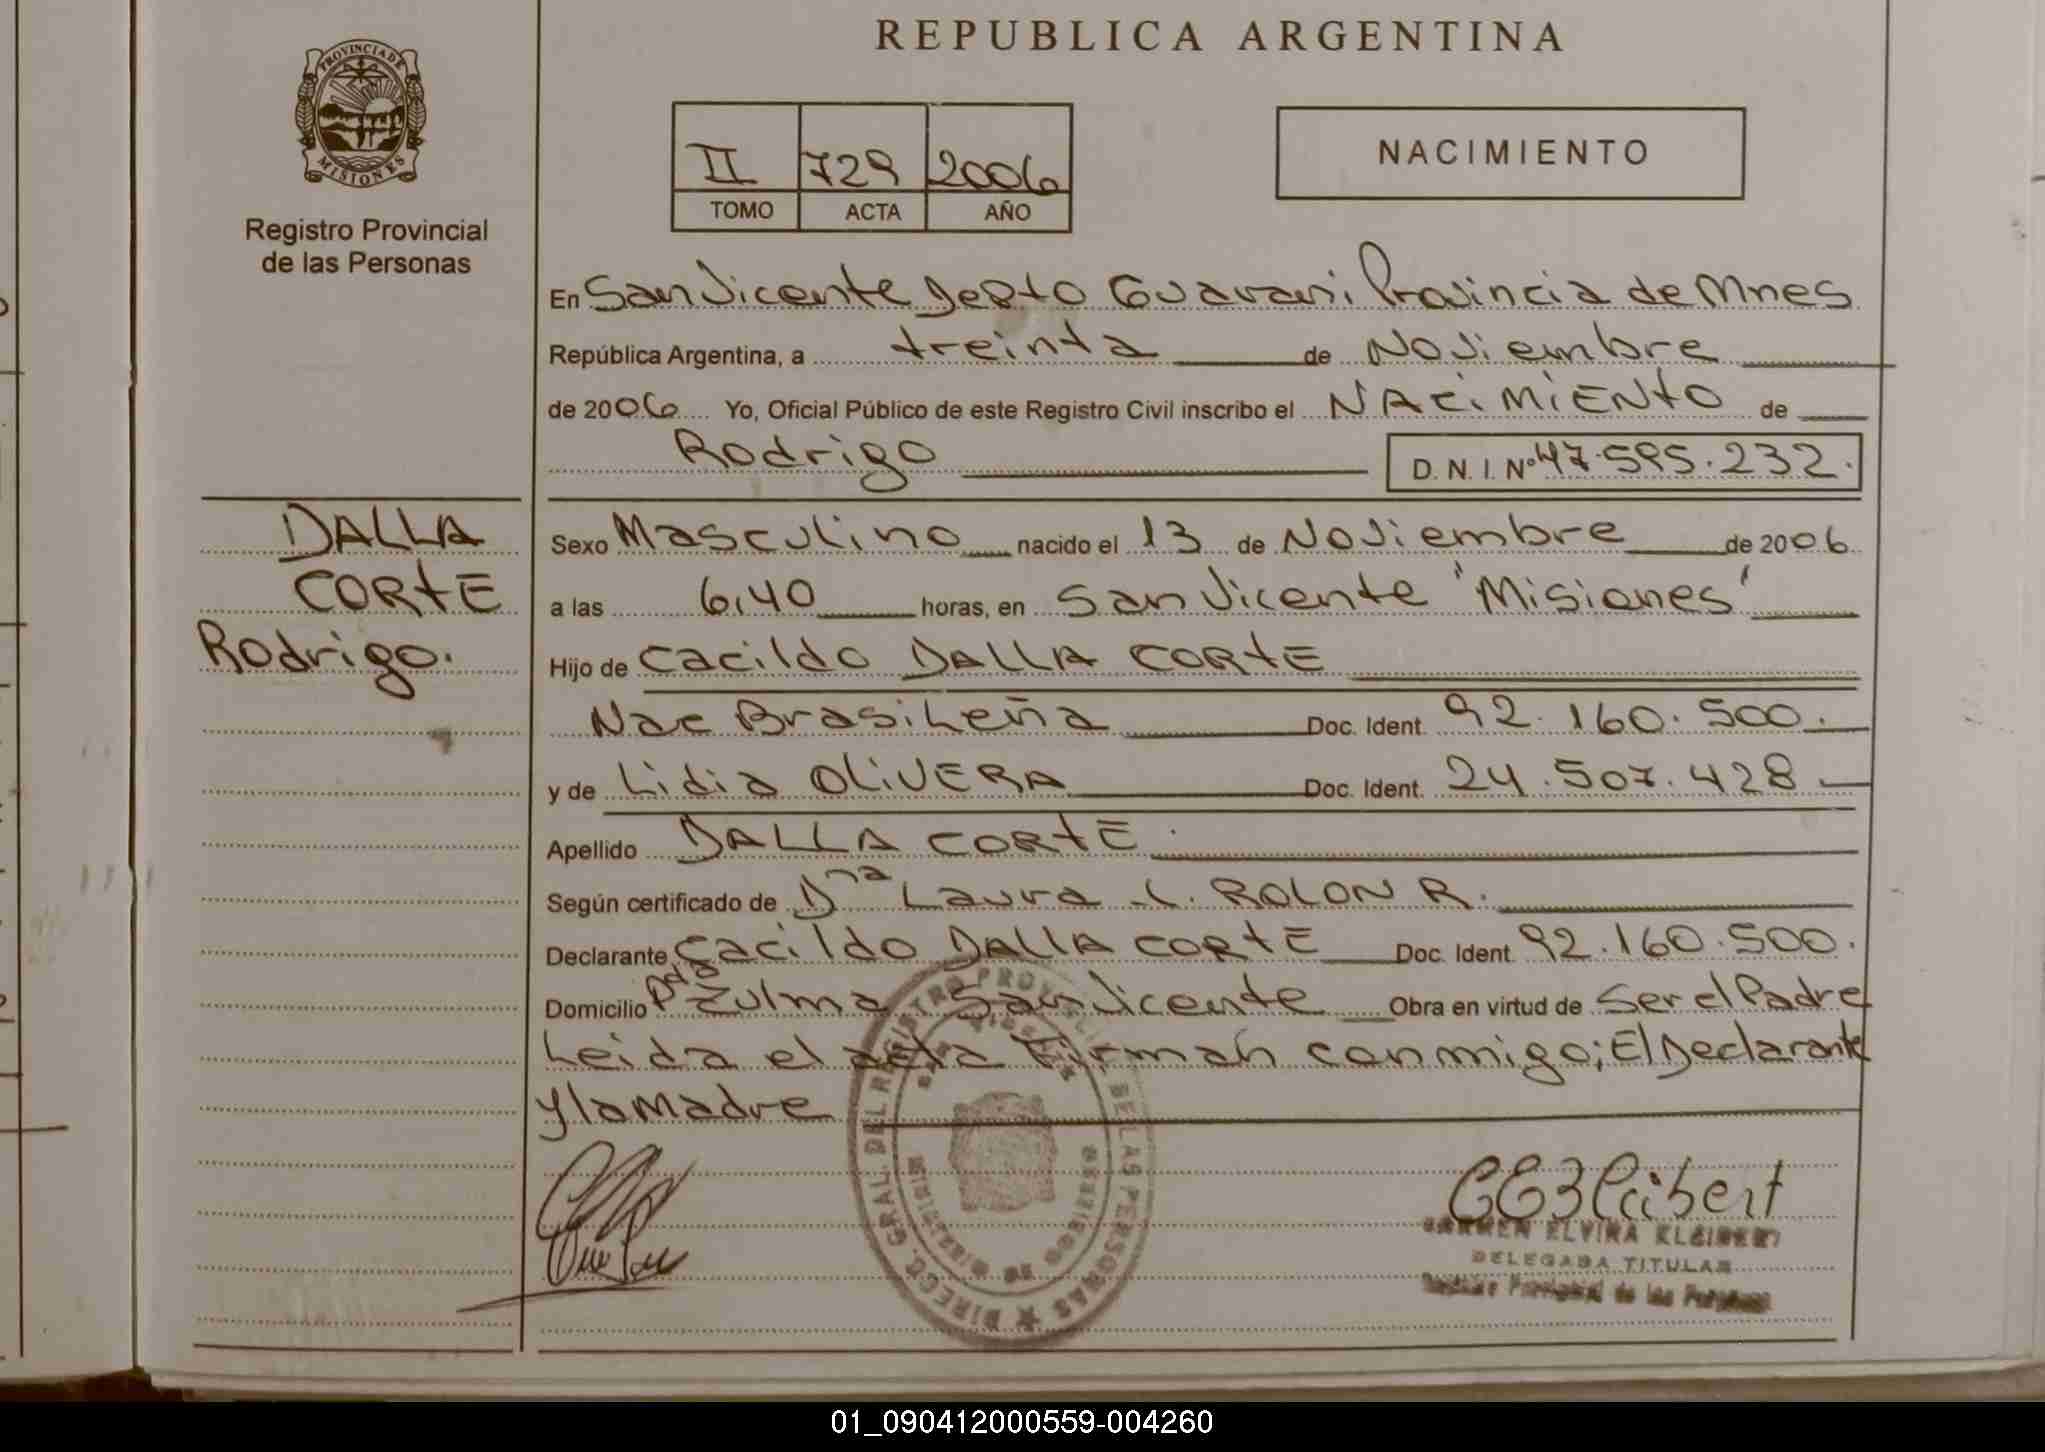 REPUBLICA ARGENTINA
PROVINCIA DE MISIONES
Registro Provincial
de las Personas
II 729 2006
TOMO ACTA AÑO
NACIMIENTO
En San Vicente Depto Guarani Provincia de Mnes
República Argentina, a treinta de Noviembre
de 2006 Yo, Oficial Público de este Registro Civil inscribo el NACIMIENTO de
Rodrigo D. N. I. Nº 47.595.232.
DALLA
CORTE
Rodrigo.
Sexo Masculino nacido el 13 de Noviembre de 2006
a las 6,40 horas, en San Vicente 'Misiones'
Hijo de Cacildo DALLA CORTE
Nac Brasileña Doc. Ident. 92.160.500.
y de Lidia OLIVERA Doc. Ident. 24.507.428
Apellido DALLA CORTE
Según certificado de Dña Laura L. ROLON R.
Declarante Cacildo DALLA CORTE Doc. Ident. 92.160.500.
Domicilio Pdo Zulma San Vicente Obra en virtud de Ser el Padre
Leida el acta Firman conmigo; El Declarante
y la Madre
DIRECC. GRAL. DEL REGISTRO PROVINCIAL DE LAS PERSONAS
CARMEN ELVIRA KLEIBERT
DELEGADA TITULAR
Registro Provincial de las Personas
01_090412000559-004260